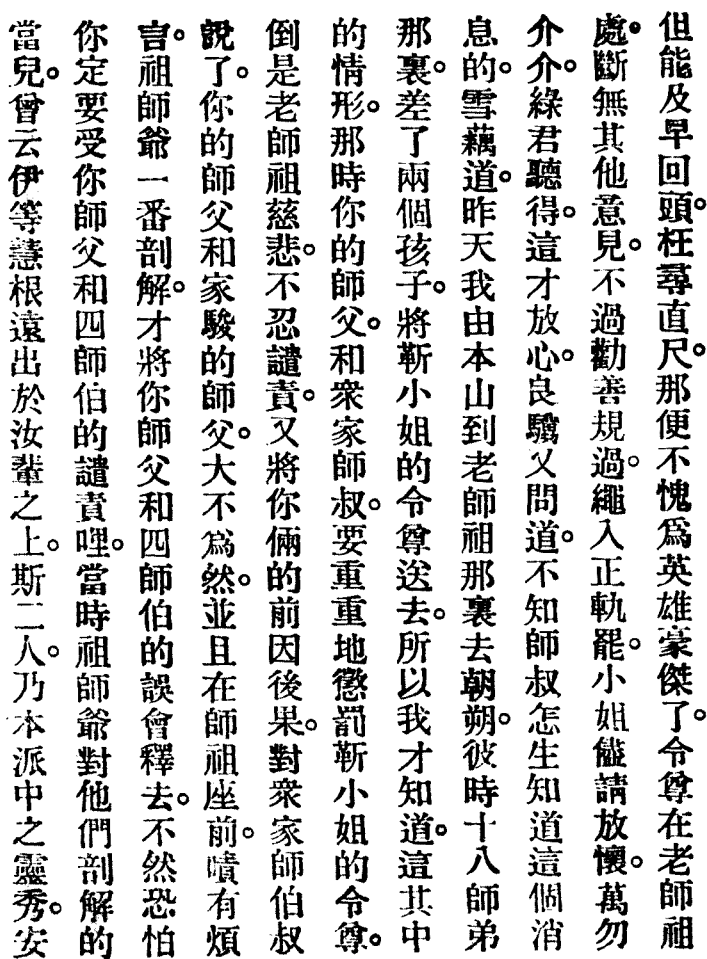 但能及早回頭。枉尋直尺。那便不愧爲英雄豪傑了。令尊在老師祖
處。斷無其他意見。不過勸善規過。繩入正軌罷。小姐儘請放懷。萬勿
介介。綠君聽得。這才放心。良驥又問道。不知師叔怎生知道這個消
息的。雪藕道。昨天我由本山到老師祖那裏去朝朔。彼時十八師弟
那裏。差了兩個孩子。將靳小姐的令尊送去。所以我才知道。這其中
的情形。那時你的師父。和衆家師叔。要重重地懲罰靳小姐的令尊。
倒是老師祖慈悲。不忍譴責。又將你倆的前因後果。對衆家師伯叔
說了。你的師父和家駿的師父。大不爲然。並且在師祖座前。嘖有煩
言。祖師爺一番剖解。才將你師父和四師伯的誤會釋去。不然恐怕
你定要受你師父和四師伯的譴責哩。當時祖師爺對他們剖解的
當兒。曾云伊等慧根遠出於汝輩之上。斯二人。乃本派中之靈秀。安